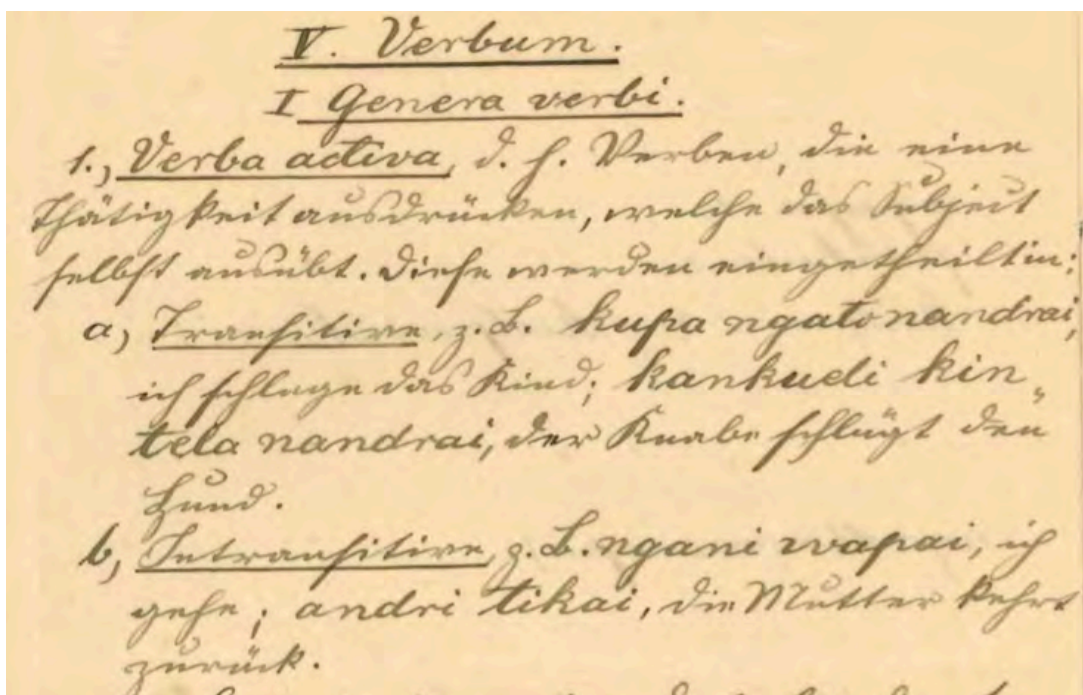 V. Verbum.
I Genera verbi.
1., Verba activa, d. h. Verben, die eine
Thätigkeit ausdrücken, welche das Subject
selbst ausübt. Diese werden eingetheilt in:
a, Transitive, z. B. kupa ngato nandrai,
ich schlage das Kind; kankudi kin„
tela nandrai, der Knabe schlägt den
Hund.
b, Intransitive, z. B. ngani wapai, ich
gehe; andri tikai, die Mutter kehrt
zurück.